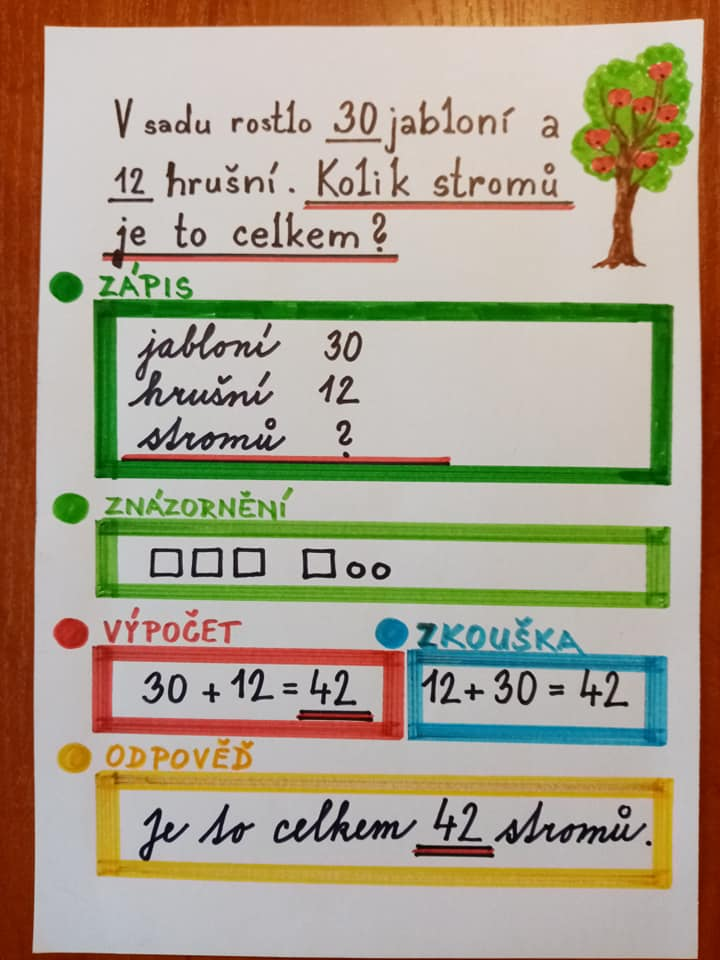 V sadu rostlo 30 jabloní a
12 hrušní. Kolik stromů
je to celkem?
ZÁPIS
jabloní 30
hrušní 12
stromů ?
ZNÁZORNĚNÍ
VÝPOČET
30 + 12 = 42
ZKOUŠKA
12 + 30 = 42
ODPOVĚĎ
Je to celkem 42 stromů.